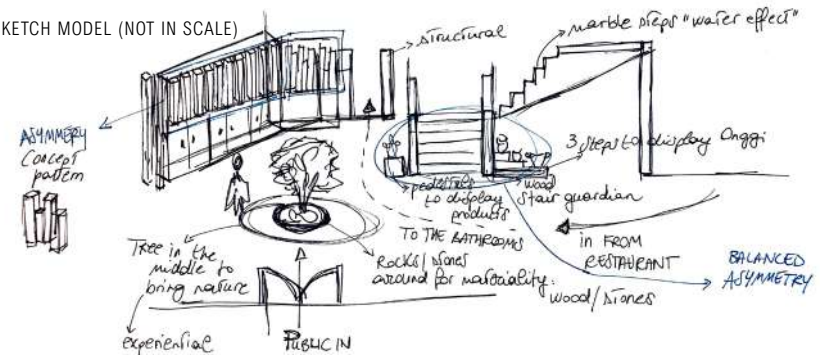 KETCH MODEL (NOT IN SCALE)
structural
marble steps "water effect"
ASYMMERY
Concept
pattern
3 steps to display Onggi
pedestals
to display
products
wood
stair guardian
TO THE BATHROOMS
in FROM
RESTAURANT
BALANCED
ASYMMETRY
Tree in the
middle to
bring nature
Rocks/stones
around for materiality:
wood/stones
experiential
PUBLIC IN